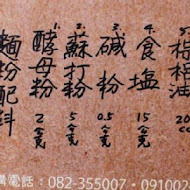 麵粉配料
1. 酵母粉 2公克
2. 蘇打粉 5公克
3. 碱粉 0.5公克
4. 食塩 15公克
5.
購電話：082-355007‧091002